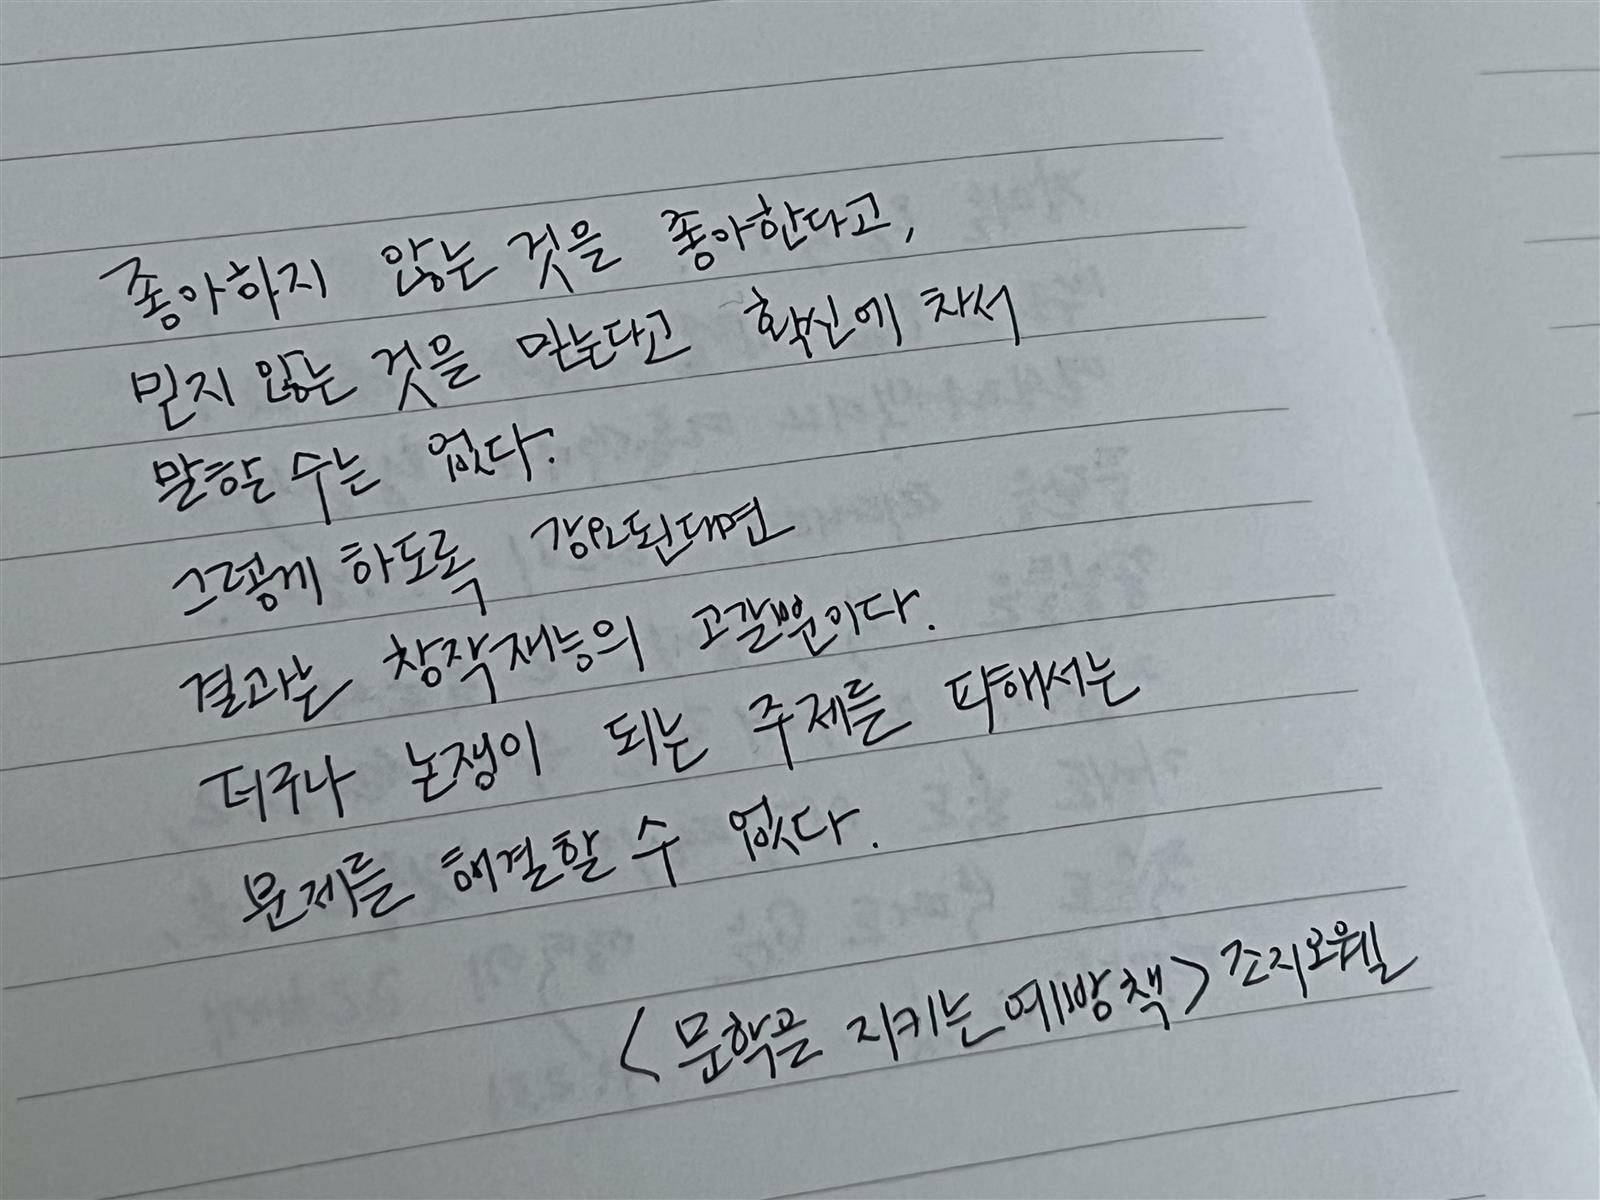 좋아하지 않는 것을 좋아한다고,
믿지 않는 것을 믿는다고 확신에 차서
말할 수는 없다.
그렇게 하도록 강요된다면
결과는 창작재능의 고갈뿐이다.
더구나 논쟁이 되는 주제를 피해서는
문제를 해결할 수 없다.
<문학을 지키는 예방책> 조지오웰